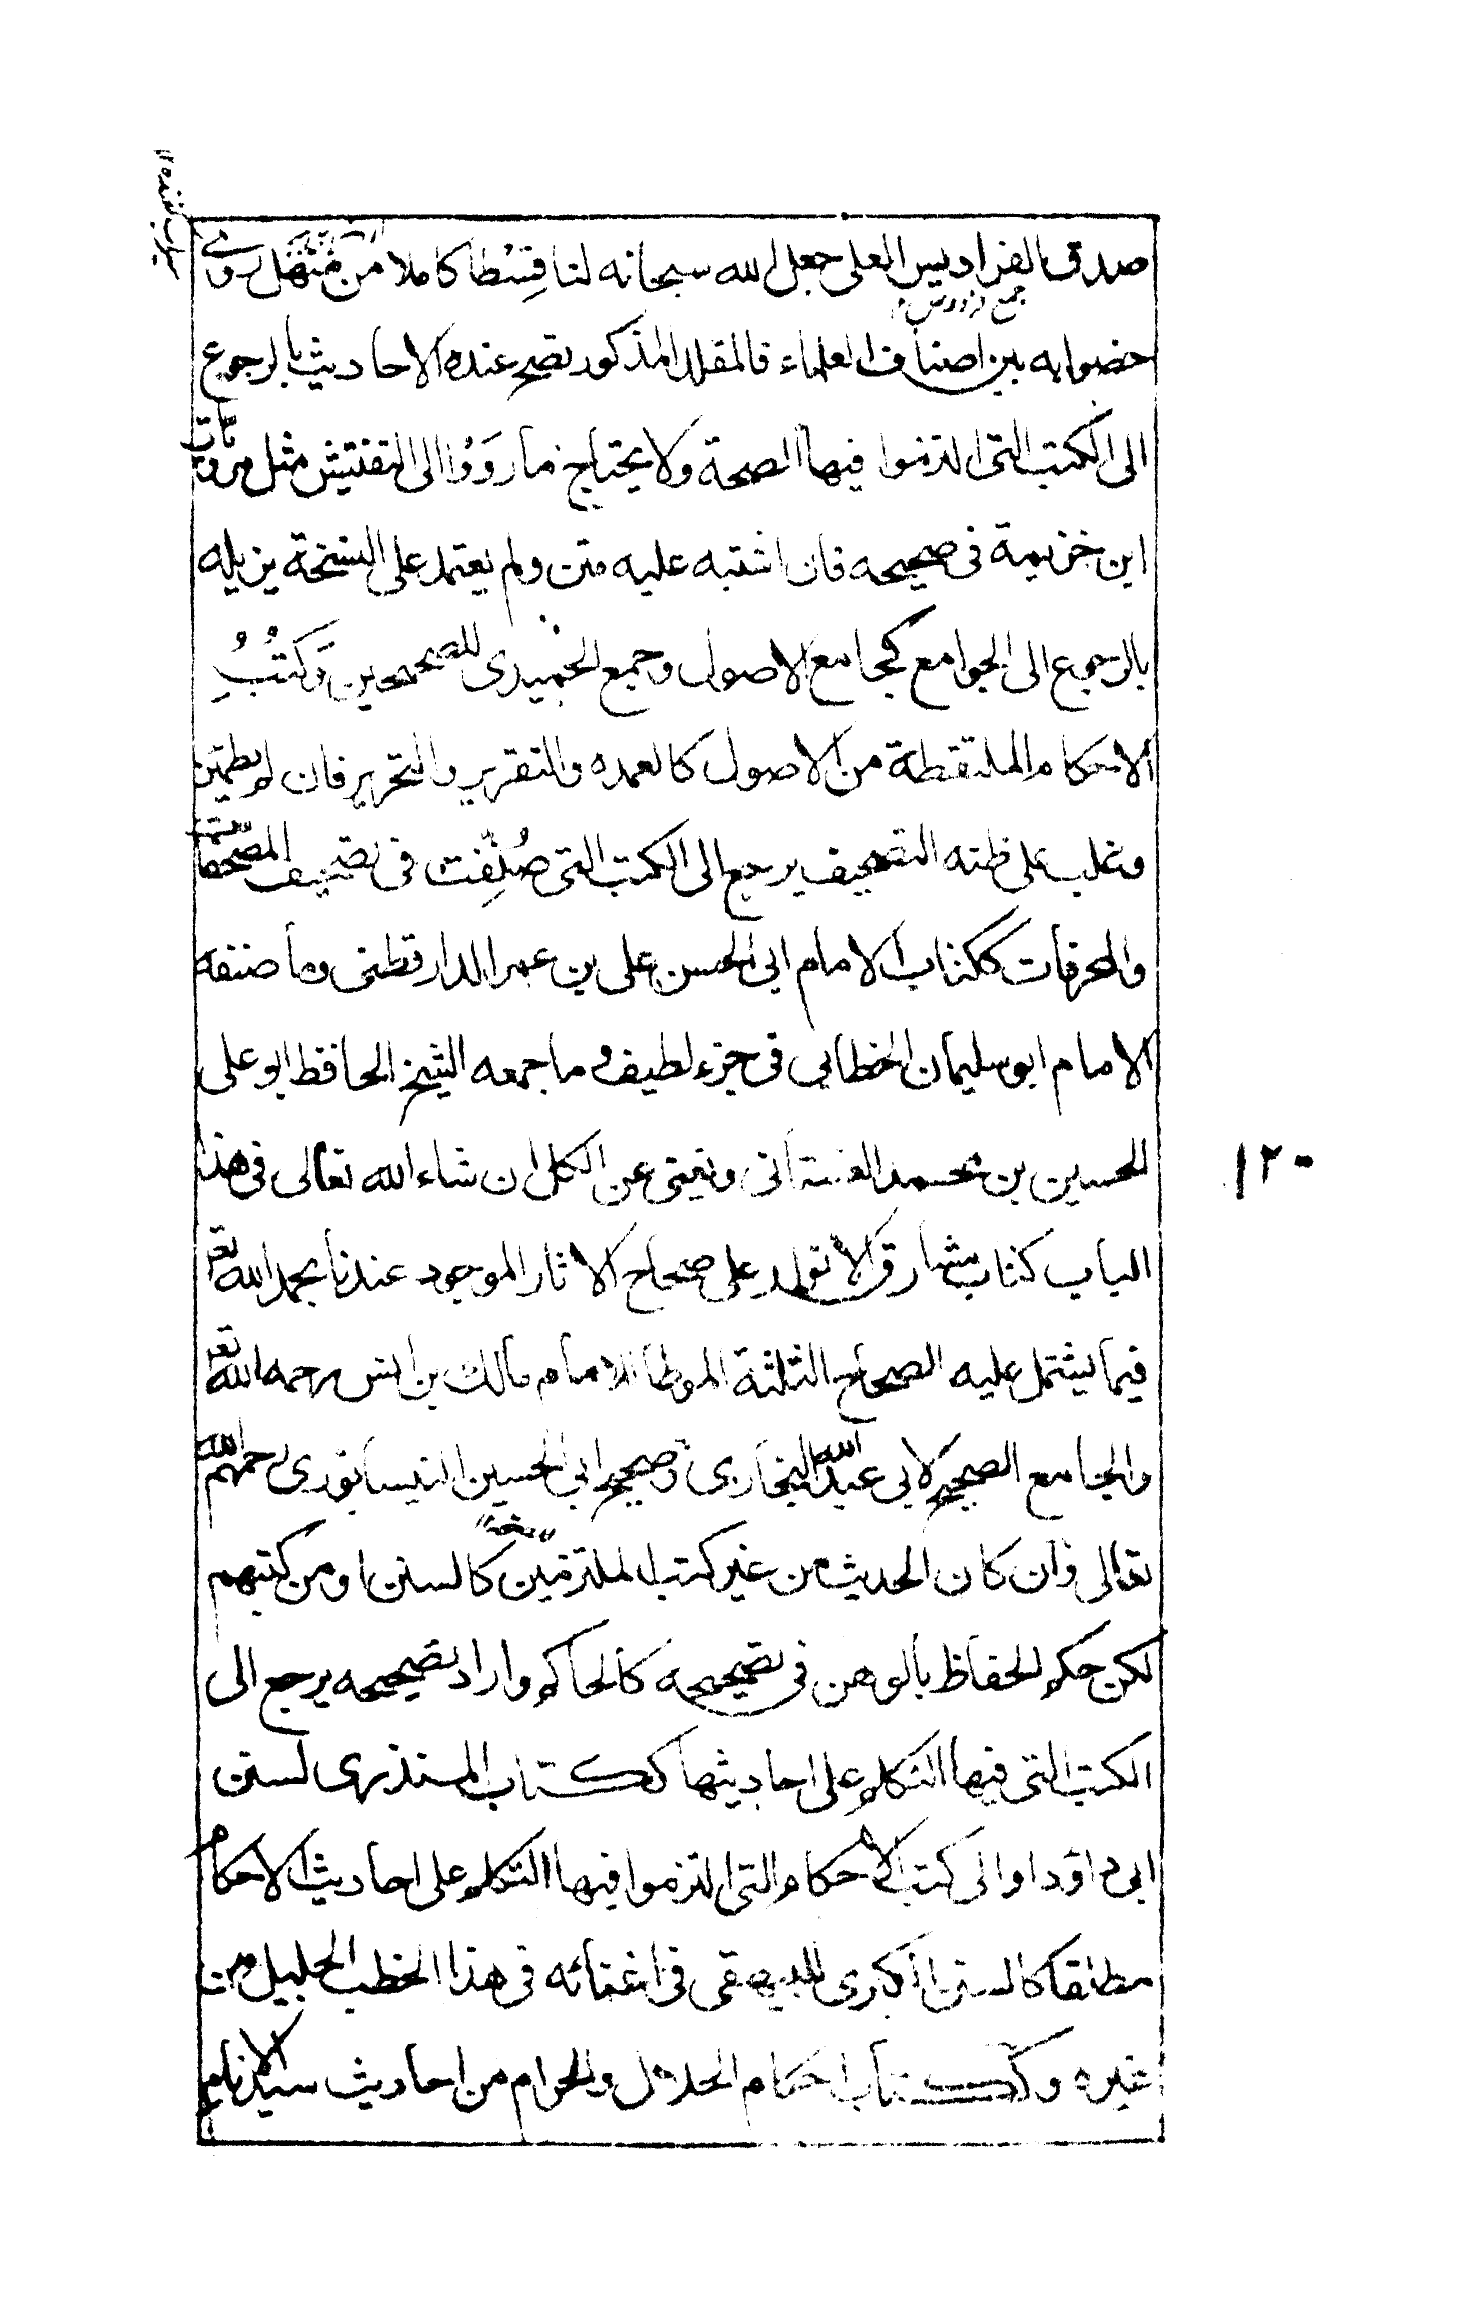 صدق الفراديس العلى جعل الله سبحانه لنا قِسْطا كاملا من مَنْهَل روي
جمع فردوس
خصوا به بين اصناف العلماء فالمقلد المذكور تصح عنده الاحاديث بالرجوع
الى الكتب التى التزموا فيها الصحة ولا يحتاج ما رَوَوْا الى التفتيش مثل مرويات
ابن خزيمة فى صحيحه فان اشتبه عليه متن ولم يعتمد على النسخة يزيله
بالرجوع الى الجوامع كجامع الاصول وجمع الحُميدى للصحيحين وَكُتُبُ
الاحكام الملتقطة من الاصول كالعمده والتقريب والتحرير فان لم يطمئن
وغلب على ظنه التصحيف يرجع الى الكتب التى صُنِّفت فى تصحيف المصحّفات
والمحرفات ككتاب الامام ابى الحسن على بن عمر الدارقطنى وما صنفه
الامام ابو سليمان الخطابى فى جزء لطيف وما جمعه الشيخ الحافظ ابو على
الحسين بن محمد الغسانى ويغنى عن الكل ان شاء الله تعالى فى هذا
١٢٠
الباب كتاب مشارق الانوار على صحاح الاثار الموجود عندنا بحمد الله تع
فيما يشتمل عليه الصحاح الثلثة الموطا للامام مالك بن انس رحمه الله تع
والجامع الصحيح لابى عبد الله البخارى وصحيح ابى الحسين النيسابورى رحمهم الله
تعالى وان كان الحديث من غير كتب الملتزمين كالسنن او من كتبهم
لكن حكم الحفاظ بالوهن فى تصحيحه كالحاكم واراد تصحيحه يرجع الى
الكتب التى فيها التكلم على احاديثها ككتاب المنذرى لسنن
ابى داؤد او الى كتب الاحكام التى التزموا فيها التكلم على احاديث الاحكام
مطلقا كالسنن الكبرى للبيهقى فى اغنائه فى هذا الخطب الجليل من
غيره وككتاب احكام الحلال والحرام من احاديث سيد الانام